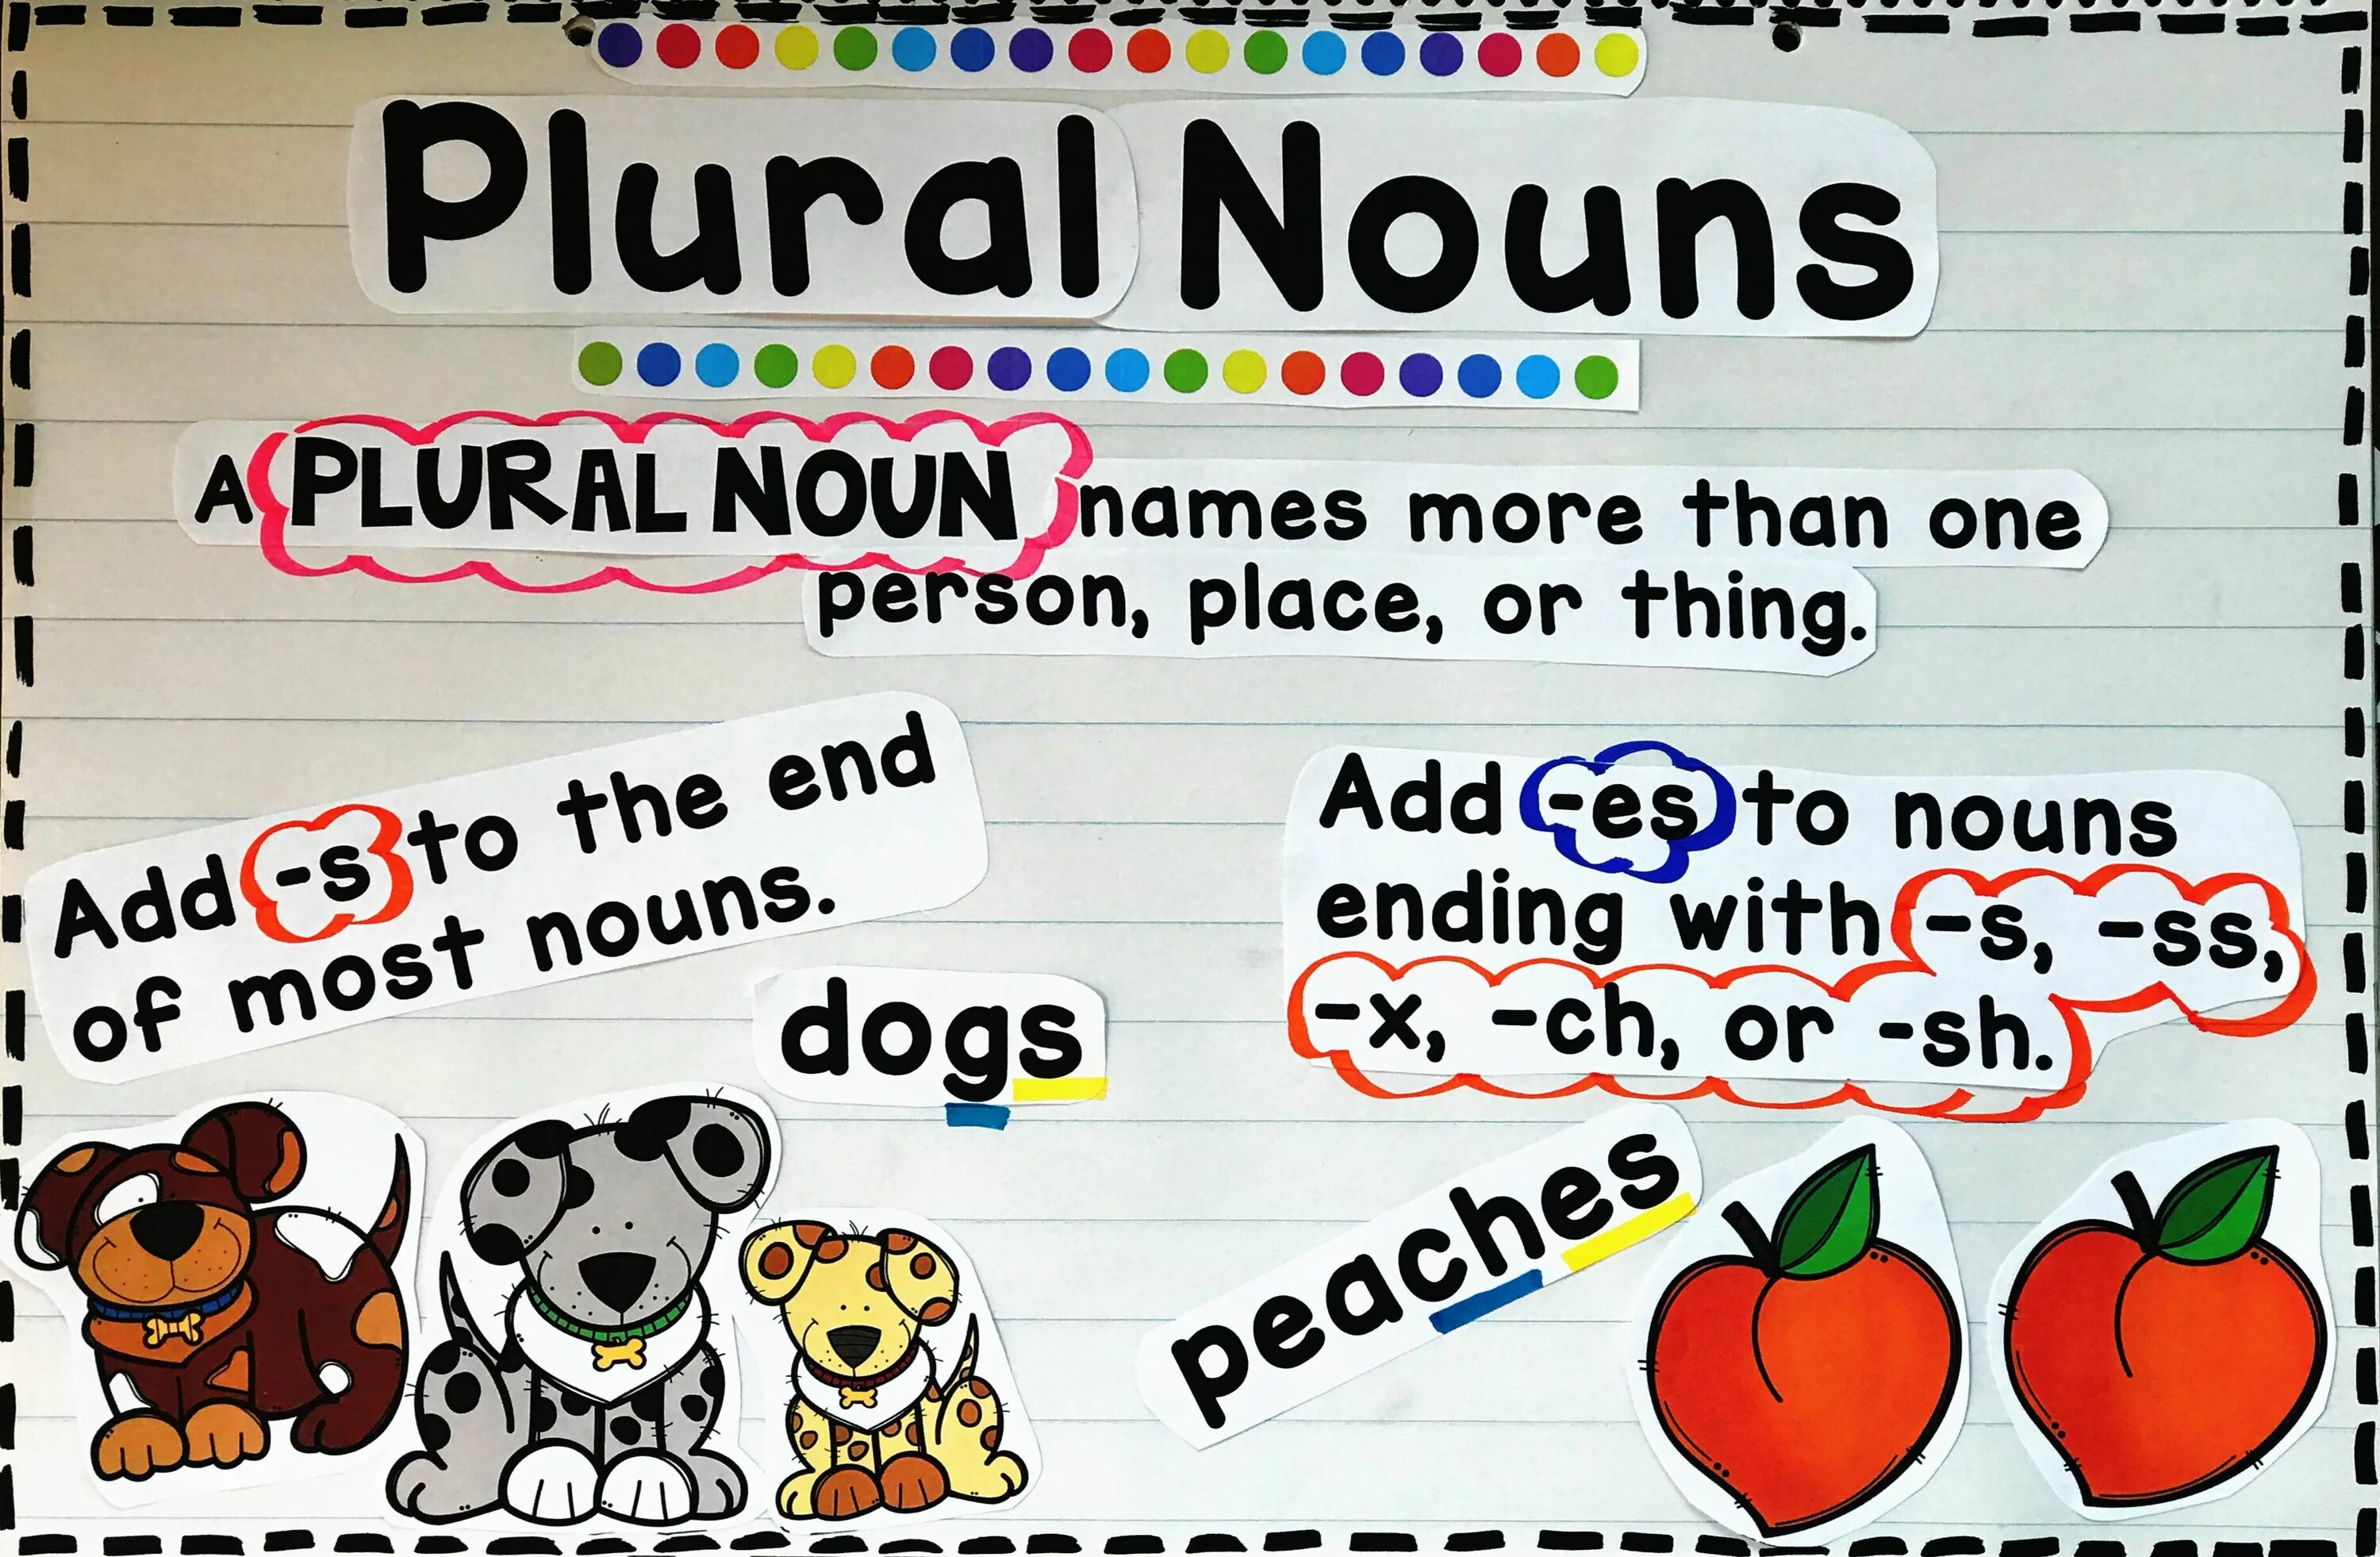 Plural Nouns
A PLURAL NOUN names more than one
person, place, or thing.
Add -s to the end
of most nouns.
dogs
Add -es to nouns
ending with -s, -ss,
-x, -ch, or -sh.
peaches